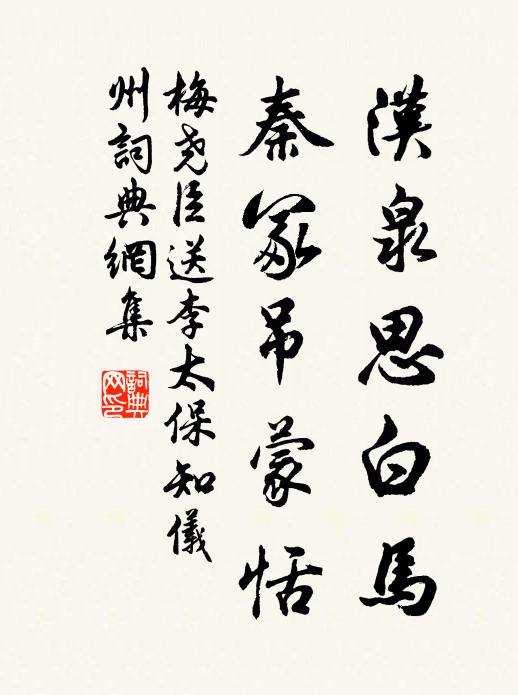 漢泉思白馬
秦冢吊蒙恬
梅堯臣送李太保知儀
州詞典網集
詞典
网印